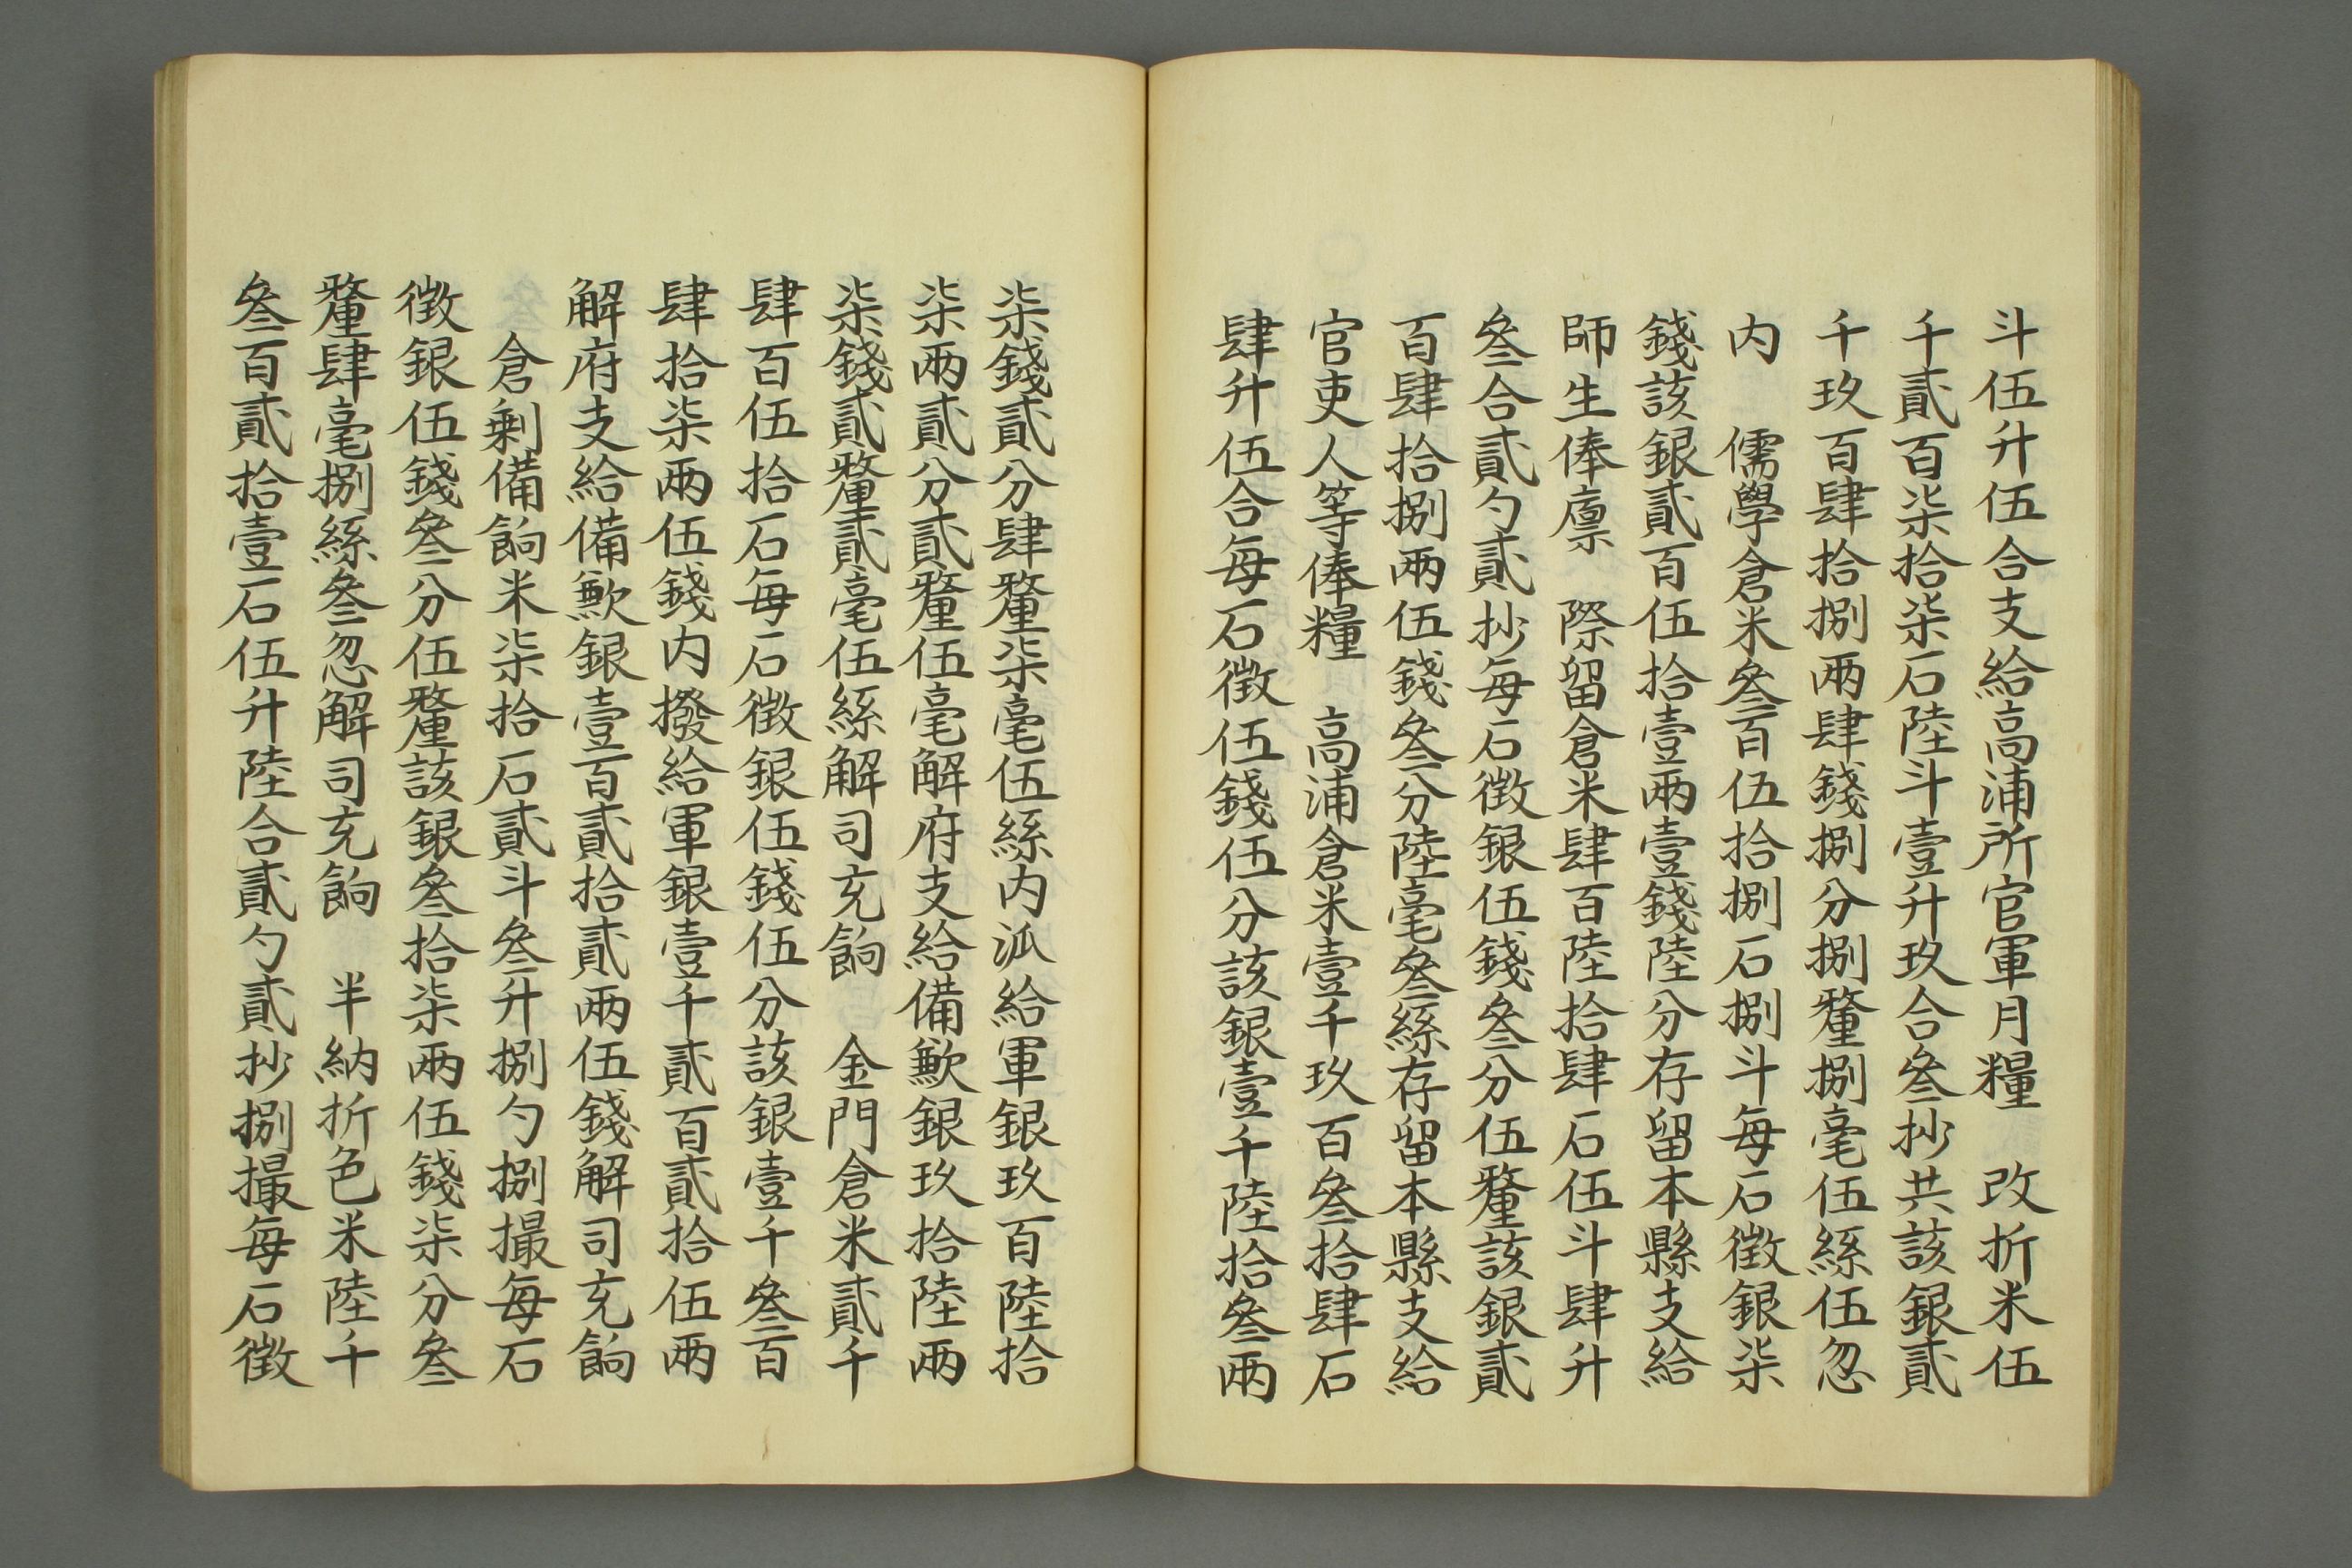 斗伍升伍合支給高浦所官軍月糧　改折米伍
千貳百柒拾柒石陸斗壹升玖合叄抄共該銀貳
千玖百肆拾捌兩肆錢捌分捌釐捌毫伍絲伍忽
内　儒學倉米叄百伍拾捌石捌斗每石徵銀柒
錢該銀貳百伍拾壹兩壹錢陸分存留本縣支給
師生俸廪　際留倉米肆百陸拾肆石伍斗肆升
叄合貳勺貳抄每石徵銀伍錢叄分伍釐該銀貳
百肆拾捌兩伍錢叄分陸毫叄絲存留本縣支給
官吏人等俸糧　高浦倉米壹千玖百叄拾肆石
肆升伍合每石徵伍錢伍分該銀壹千陸拾叄兩
柒錢貳分肆釐柒毫伍絲内派給軍銀玖百陸拾
柒兩貳分貳釐伍毫解府支給備歉銀玖拾陸兩
柒錢貳釐貳毫伍絲解司充餉　金門倉米貳千
肆百伍拾石每石徵銀伍錢伍分該銀壹千叄百
肆拾柒兩伍錢内撥給軍銀壹千貳百貳拾伍兩
解府支給備歉銀壹百貳拾貳兩伍錢解司充餉
　倉剩備餉米柒拾石貳斗叄升捌勺捌撮每石
徵銀伍錢叄分伍釐該銀叄拾柒兩伍錢柒分叄
釐肆毫捌絲叄忽解司充餉　半納折色米陸千
叄百貳拾壹石伍升陸合貳勺貳抄捌撮每石徵